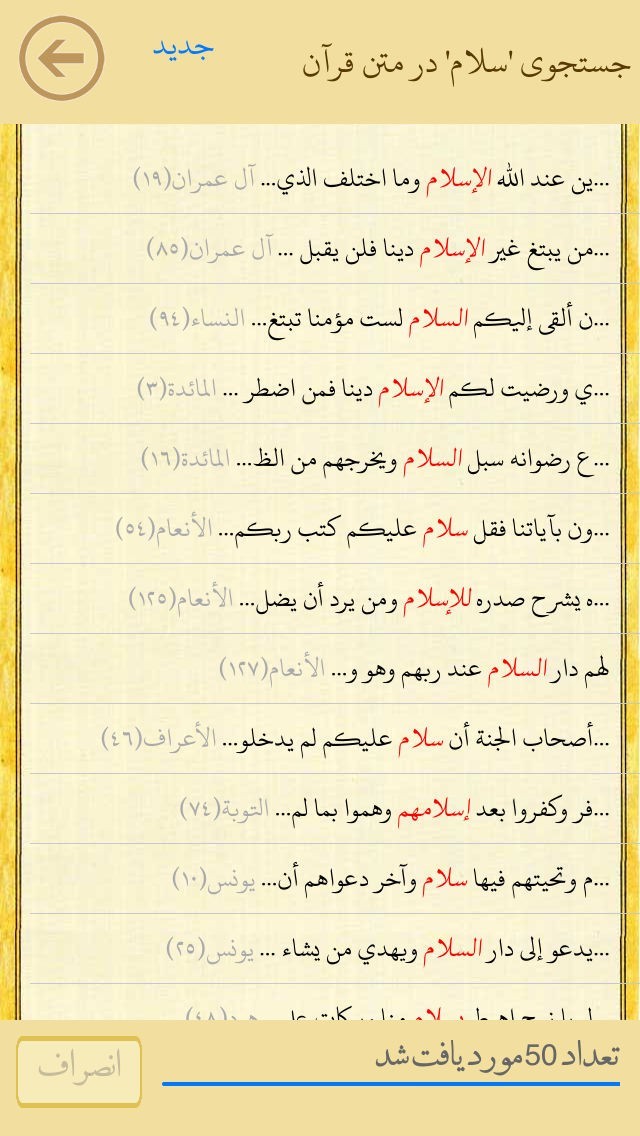 جستجوی 'سلام' در متن قرآن
جدید
...ين عند الله الإسلام وما اختلف الذي... آل عمران(١٩)
...من يبتغ غير الإسلام دينا فلن يقبل ... آل عمران(٨٥)
...ن ألقى إليكم السلام لست مؤمنا تبتغ... النساء(٩٤)
...ي ورضيت لكم الإسلام دينا فمن اضطر ... المائدة(٣)
...ع رضوانه سبل السلام ويخرجهم من الظ... المائدة(١٦)
...ون بآياتنا فقل سلام عليكم كتب ربكم... الأنعام(٥٤)
...ه يشرح صدره للإسلام ومن يرد أن يضل... الأنعام(١٢٥)
لهم دار السلام عند ربهم وهو و... الأنعام(١٢٧)
...أصحاب الجنة أن سلام عليكم لم يدخلو... الأعراف(٤٦)
...فر وكفروا بعد إسلامهم وهموا بما لم... التوبة(٧٤)
...م وتحيتهم فيها سلام وآخر دعواهم أن... يونس(١٠)
...يدعو إلى دار السلام ويهدي من يشاء ... يونس(٢٥)
نوح اهبط بسلام منا وبركات هود(٤٨)
تعداد 50 مورد یافت شد
انصراف